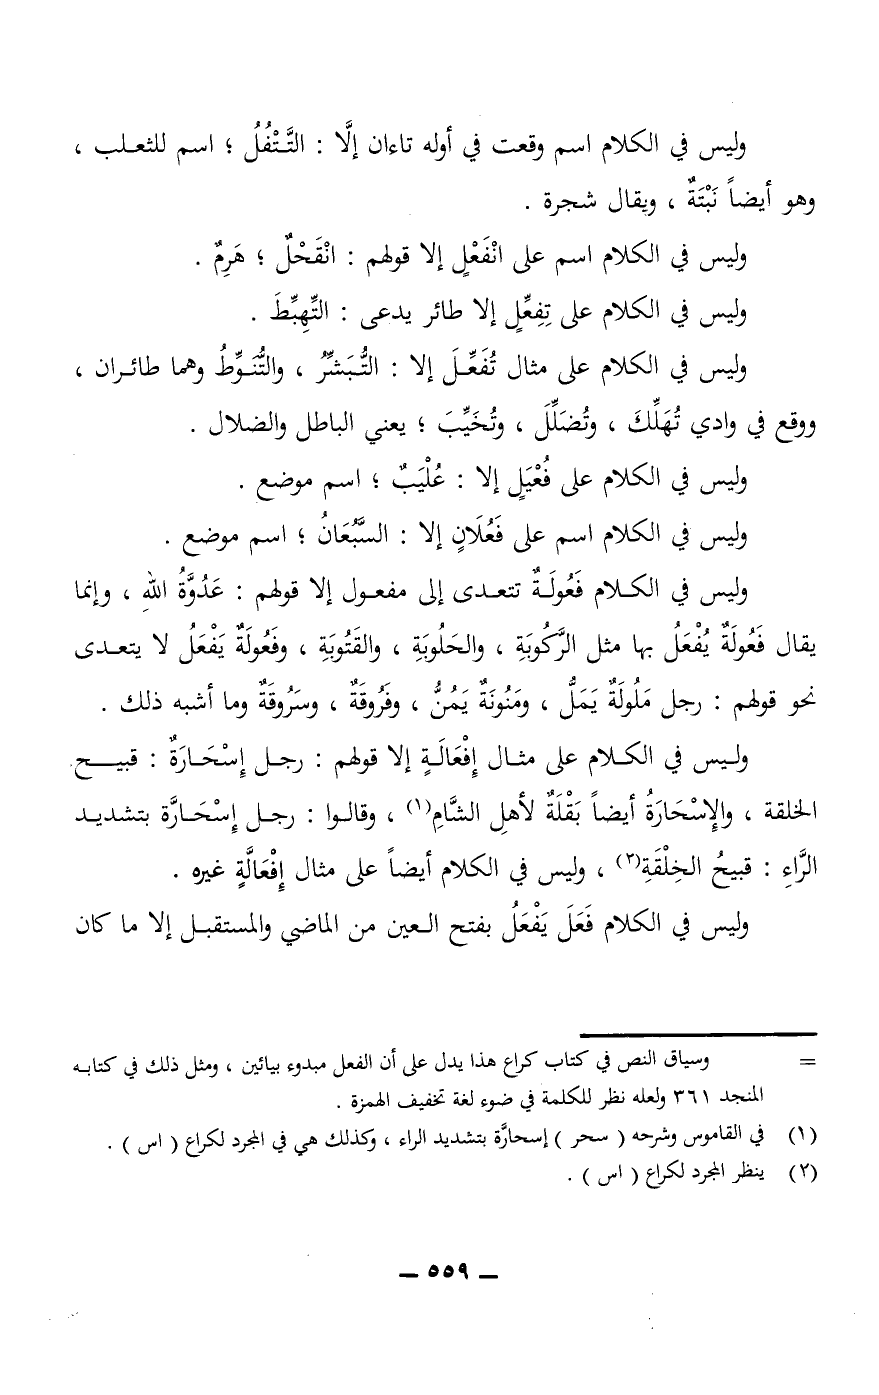 وليس في الكلام اسم وقعت في أوله تاءان إلَّا : التَّتْفُلُ ؛ اسم للثعلب ،
وهو أيضاً نَبْتَةٌ ، ويقال شجرة .
وليس في الكلام اسم على انْفَعْلٍ إلا قولهم : انْقَحْلٌ ؛ هَرِمٌ .
وليس في الكلام على تِفِعِّلٍ إلا طائر يدعى : التِّهِبِّطَ .
وليس في الكلام على مثال تُفَعِّلَ إلا : التُّبَشِّرُ ، والتُّنَوِّطُ وهما طائران ،
ووقع في وادي تُهَلِّكَ ، وتُضَلِّلَ ، وتُخَيِّبَ ؛ يعني الباطل والضلال .
وليس في الكلام على فُعْيَلٍ إلا : عُلْيَبٌ ؛ اسم موضع .
وليس في الكلام اسم على فَعُلَانٍ إلا : السَّبُعَانُ ؛ اسم موضع .
وليس في الكلام فَعُولَةٌ تتعدى إلى مفعول إلا قولهم : عَدُوَّةُ اللهِ ، وإنما
يقال فَعُولَةٌ يُفْعَلُ بها مثل الرَّكُوبَةِ ، والحَلُوبَةِ ، والقَتُوبَةِ ، وفَعُولَةٌ يَفْعَلُ لا يتعدى
نحو قولهم : رجل مَلُولَةٌ يَمَلُّ ، ومَنُونَةٌ يَمُنُّ ، وفَرُوقَةٌ ، وسَرُوقَةٌ وما أشبه ذلك .
وليس في الكلام على مثال إِفْعَالَةٍ إلا قولهم : رجل إِسْحَارَةٌ : قبيح
الخلقة ، والإِسْحَارَةُ أيضاً بَقْلَةٌ لأهلِ الشَّامِ(١) ، وقالوا : رجل إِسْحَارَّة بتشديد
الرَّاءِ : قبيحُ الخِلْقَةِ(٢) ، وليس في الكلام أيضاً على مثال إِفْعَالَّةٍ غيره .
وليس في الكلام فَعَلَ يَفْعَلُ بفتح العين من الماضي والمستقبل إلا ما كان
= وسياق النص في كتاب كراع هذا يدل على أن الفعل مبدوء بيائين ، ومثل ذلك في كتابه
المنجد ٣٦١ ولعله نظر للكلمة في ضوء لغة تخفيف الهمزة .
(١) في القاموس وشرحه ( سحر ) إسحارَّة بتشديد الراء ، وكذلك هي في المجرد لكراع ( اس ) .
(٢) ينظر المجرد لكراع ( اس ) .
ــ ٥٥٩ ــ